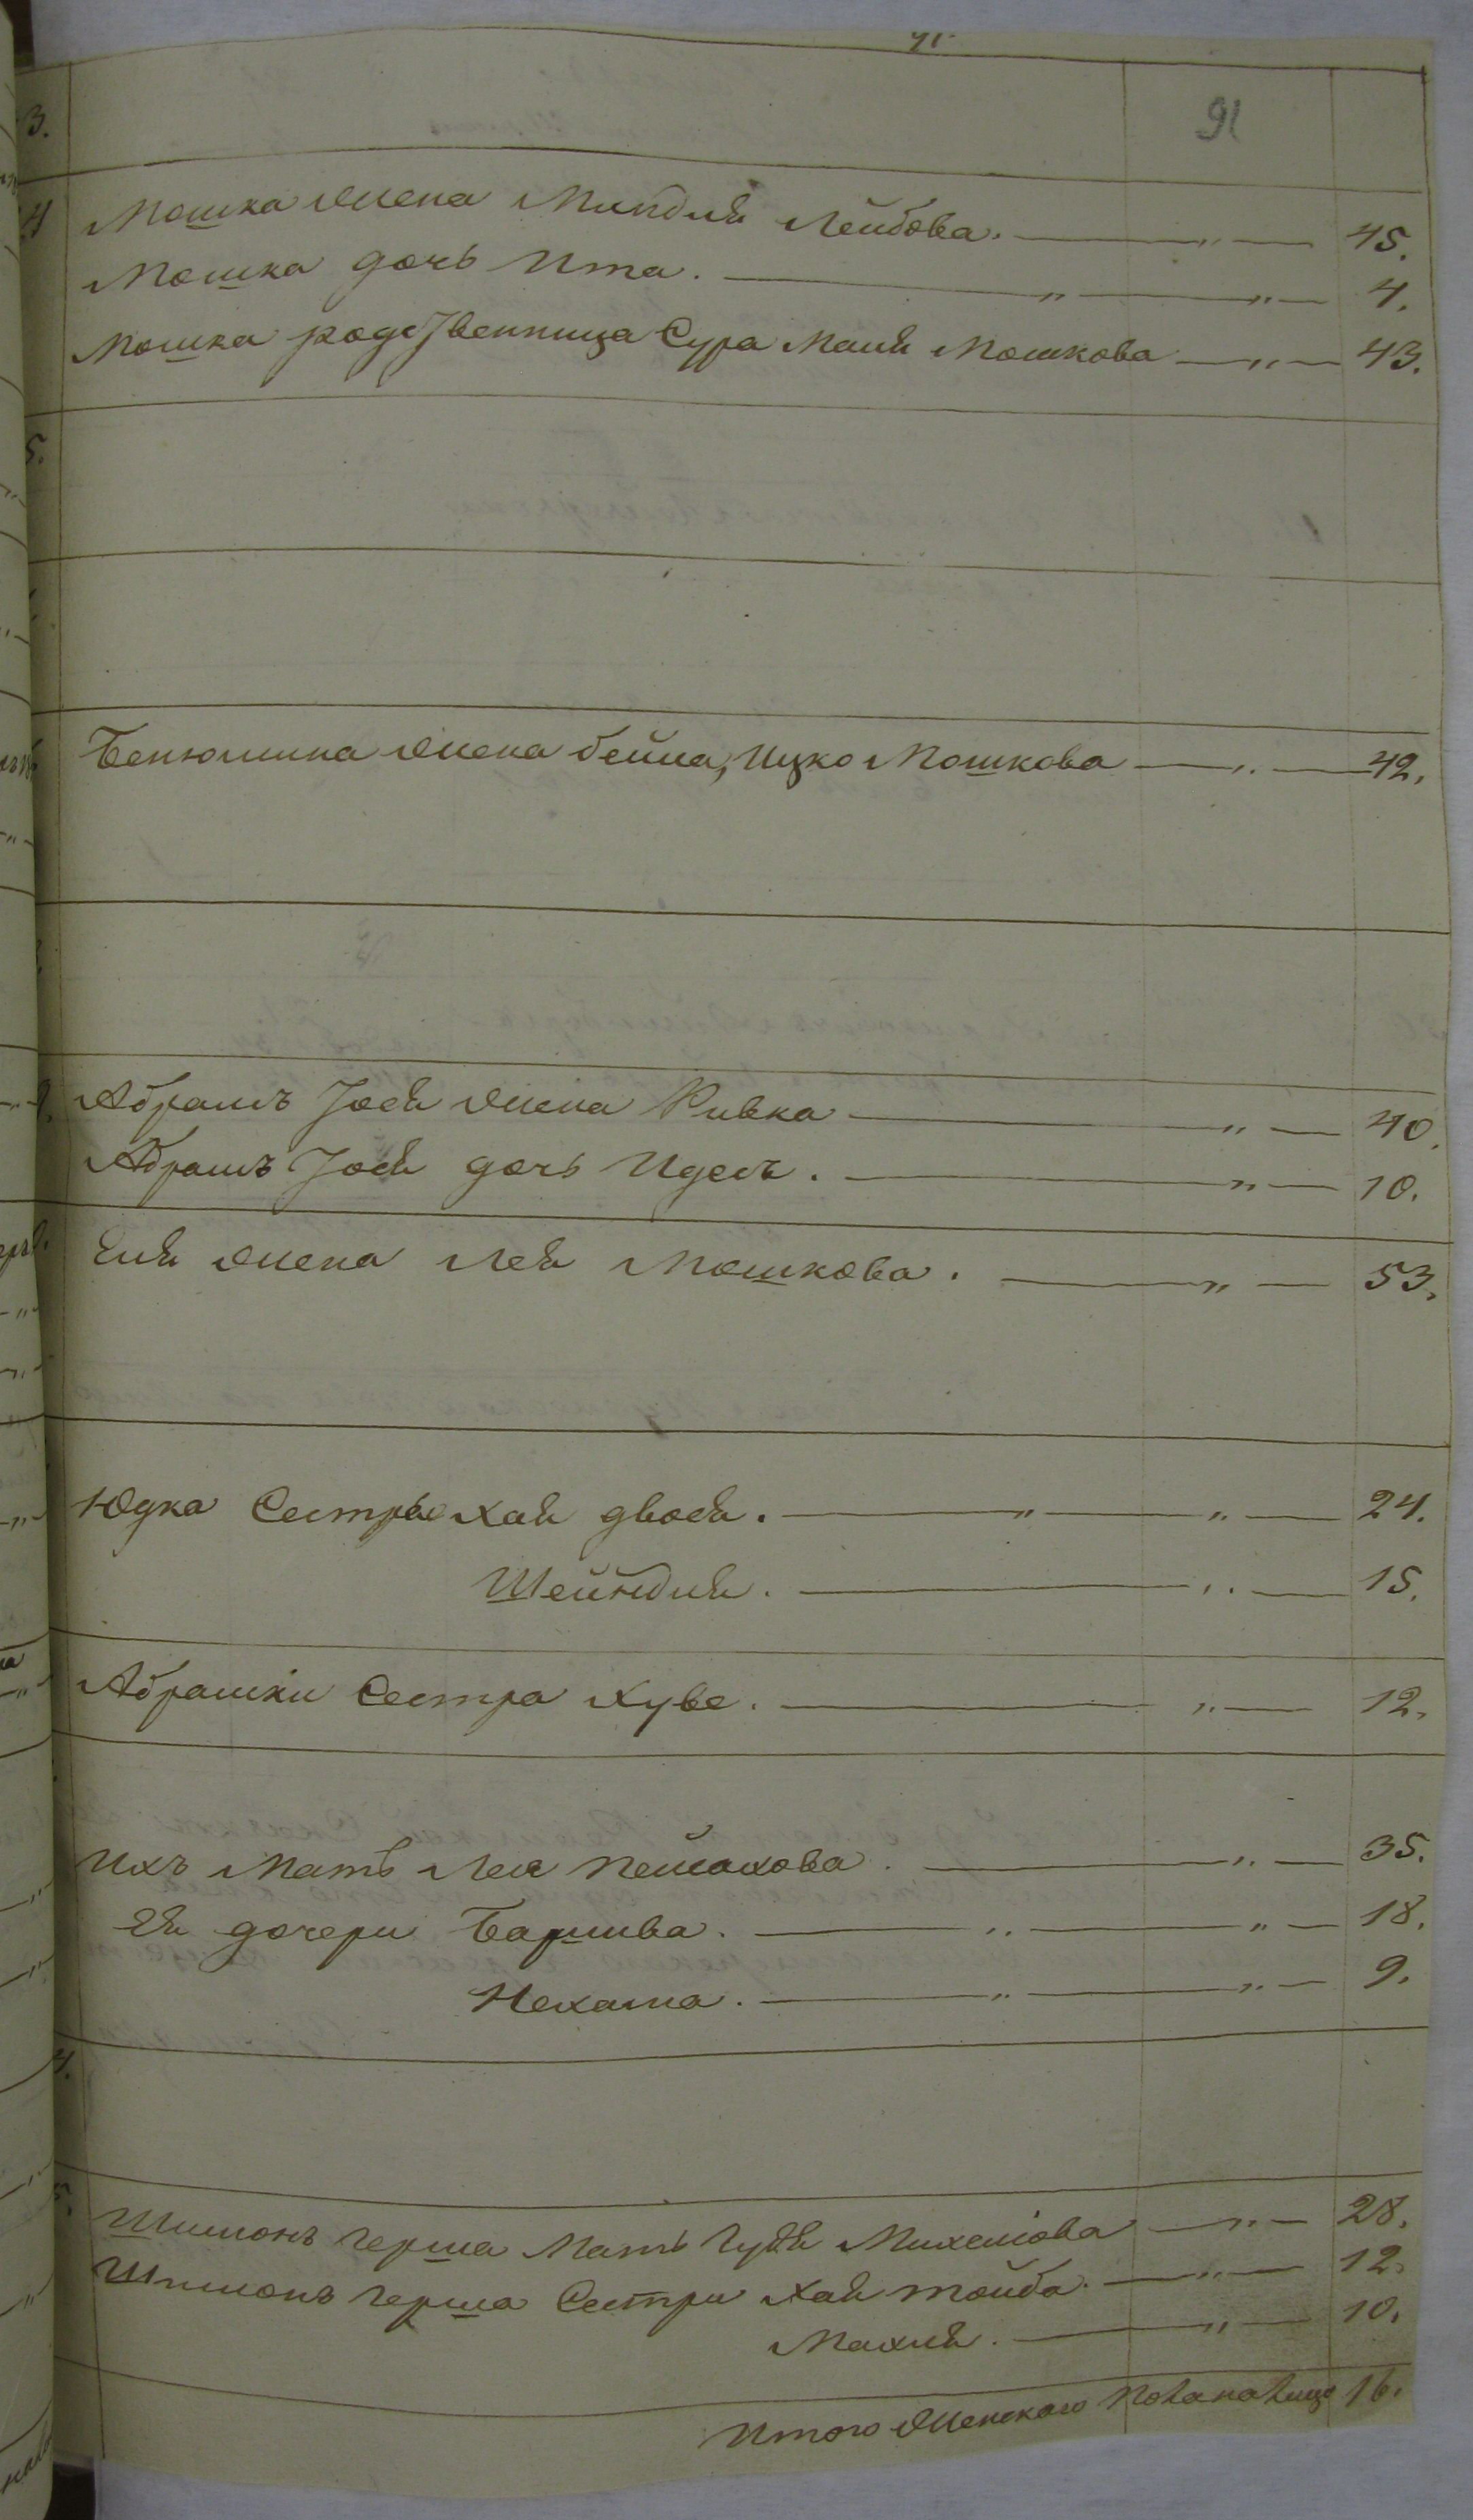 91
Мошка жена Миндля Лейбова. — " — 45.
Мошка дочь Ита. — " — " — 4.
Мошка родственница Сура Маля Мошкова — " — 43.
Бенюмина жена бейла, Ицко Мошкова — " — 42.
Абрамъ Іося жена Ривка — " — 40.
Абрамъ Іося дочь Идесъ. — " — 10.
Еля жена Лея Мошкова. — " — 53.
Юдка Сестры Хая двося. — " — " — 24.
Шейндля. — " — 15.
Абрашки Сестра Хуве. — " — 12.
Ихъ Мать Лея Пейсахова. — " — 35.
Ея дочери Баршива. — " — " — 18.
Нехама. — " — " — 9.
Шимонъ Герша Мать Гудя Михелова — " — 28.
Шимонъ Герша Сестры Хая тойба. — " — 12.
Махля. — " — 10.
Итого Женскаго Пола на лицо 16.